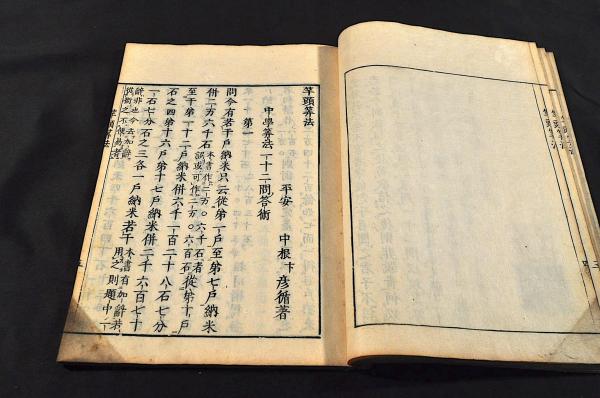 竿頭算法
平安 中根卞彦循著
中學算法一十二問答術
第一
問今有若干戸納米只云從第一戸至第七戸納米
併二万六千石本書作二万〇六千石者誤或可作二万〇六百石從第十戸
至于第十二戸納米併六千一百二十八石七分
石之四第十六戸第十七戸納米併二千六百七十
一石七分石之三各一戸納米若干本書有加辭若用之則題中一
辭非也今去加辭
竿頭算法